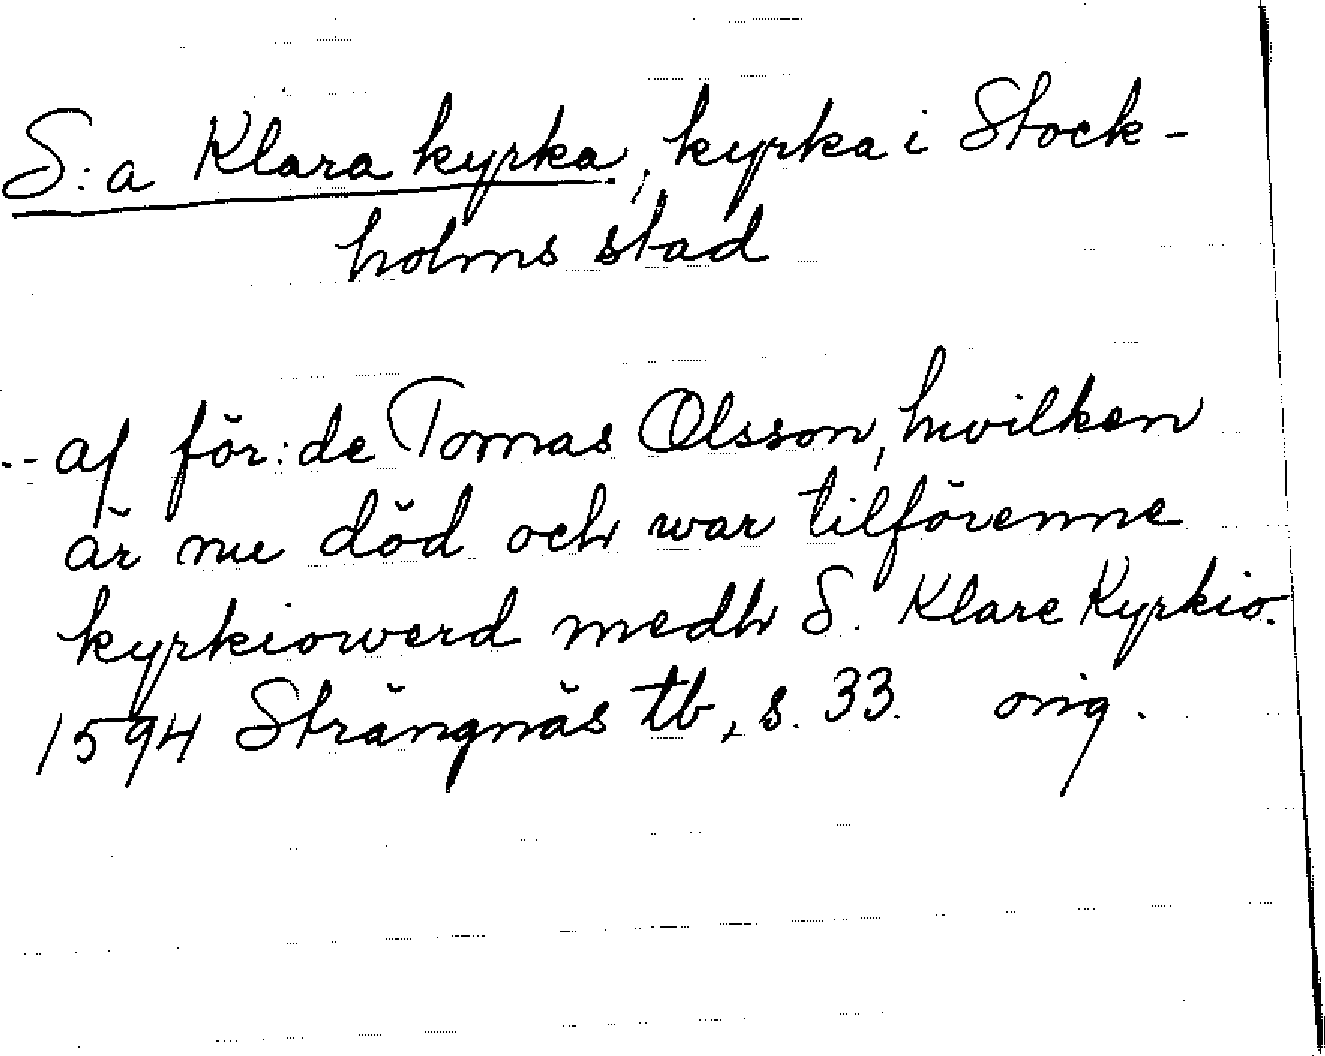 S:a Klara kyrka, kyrka i Stock-
holms stad
.-- af för:de Tomas Olsson, hwilken
är nu död och war tilförenne
kyrkiowerd medh S. Klare Kyrkio.
1594 Strängnäs tb, s. 33. orig.